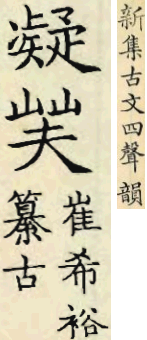 新集古文四聲韻
凝
崔希裕
纂古